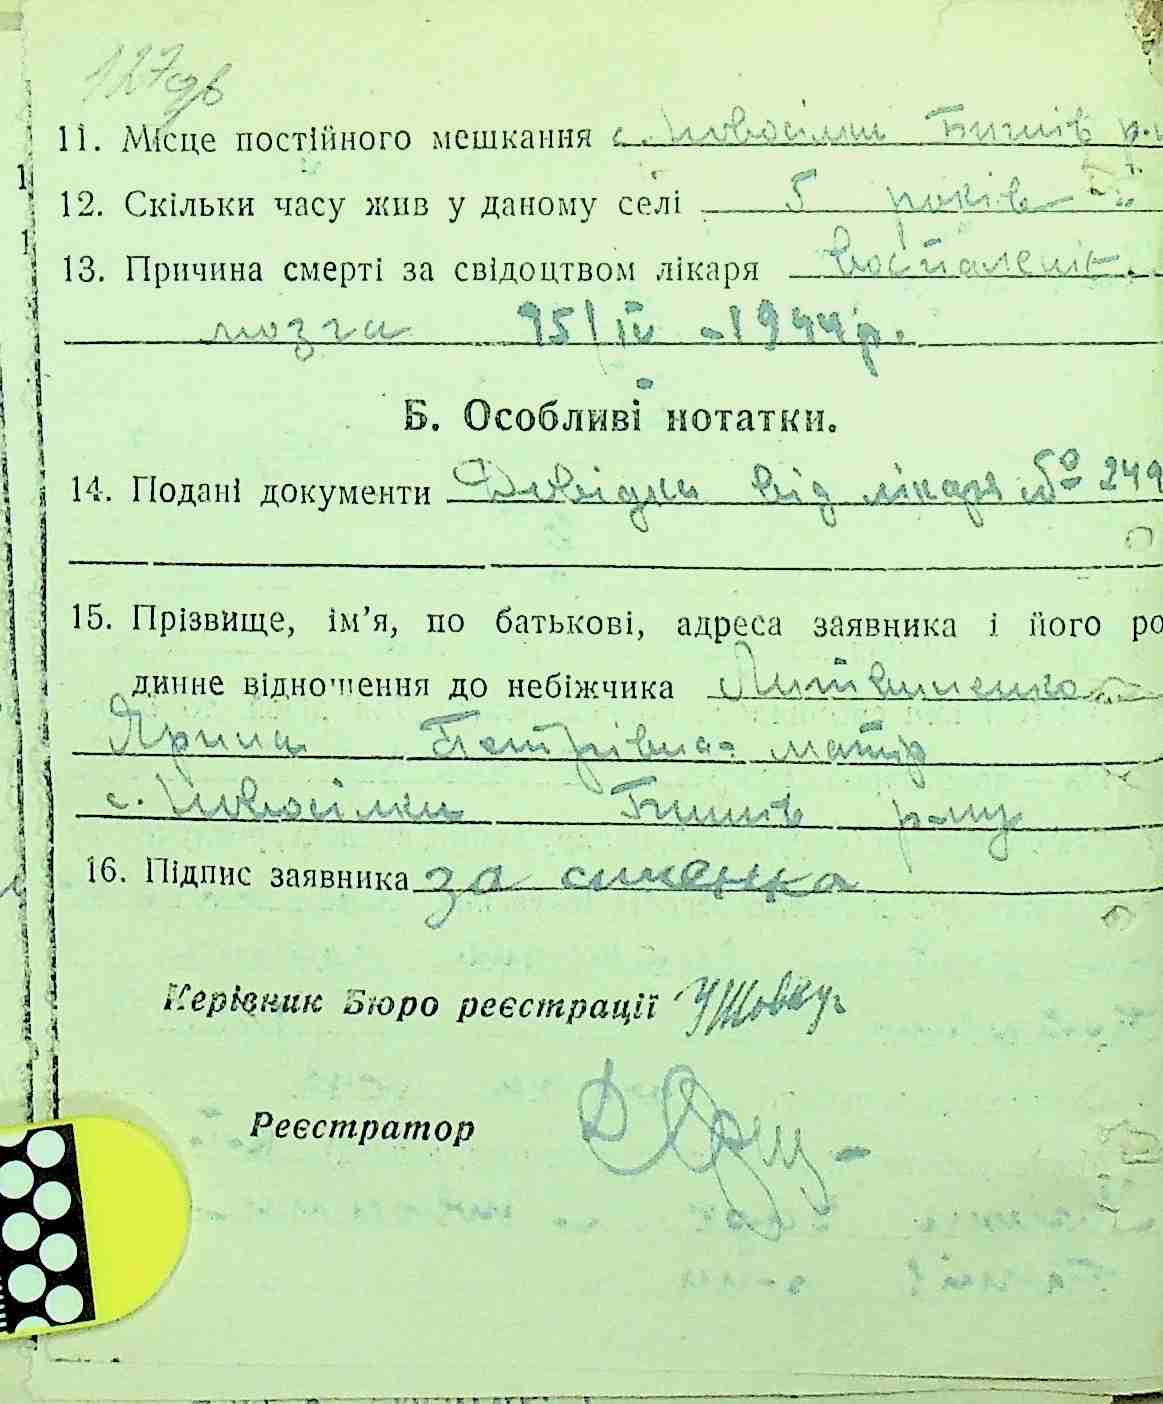 127зв
11. Місце постійного мешкання с. Новосілки Бишів р-н
12. Скільки часу жив у даному селі 5 років
13. Причина смерті за свідоцтвом лікаря Воспаленіє
мозга 15/IV - 1944 р.
Б. Особливі нотатки.
14. Подані документи Довідка від лікаря № 249
15. Прізвище, ім’я, по батькові, адреса заявника і його ро
динне відношення до небіжчика Литвиненко
Ярина Петрівна - матір
с. Новосілки Бишів р-ну
16. Підпис заявника за
Керівник Бюро реєстрації
Реєстратор